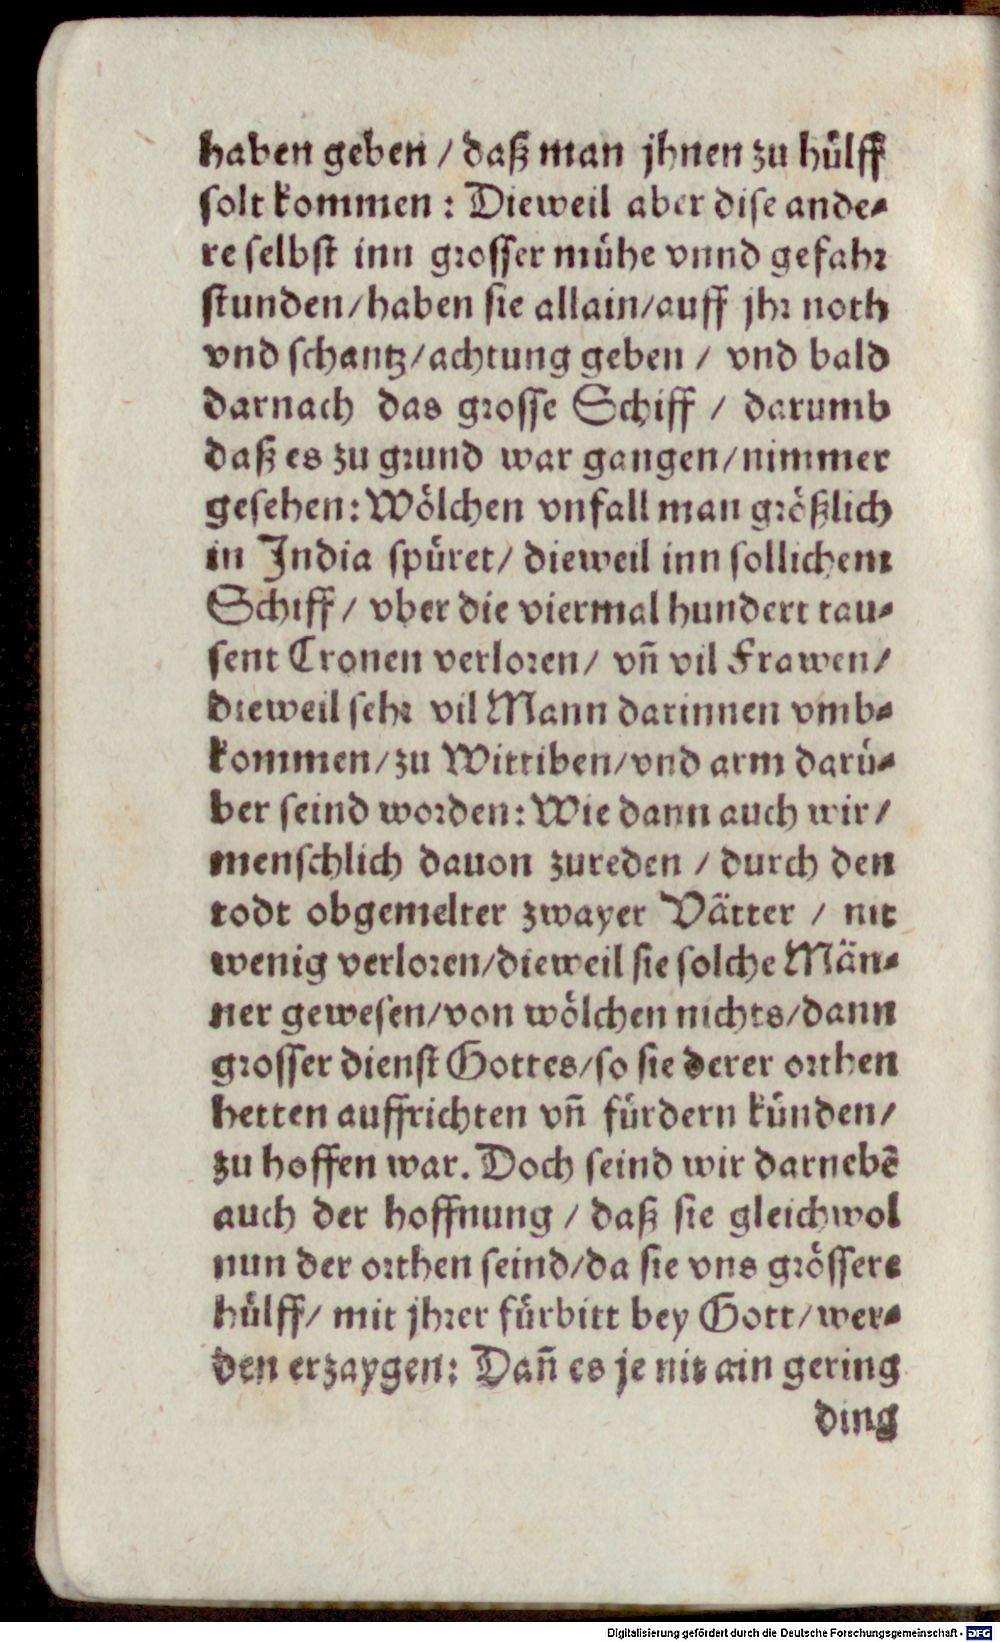 haben geben / daß man jhnen zu hülff
solt kommen : Dieweil aber dise ande-
re selbst inn grosser mühe vnnd gefahr
stunden/haben sie allain/auff jhr noth
vnd schantz/achtung geben / vnd bald
darnach das grosse Schiff / darumb
daß es zu grund war gangen/nimmer
gesehen: Wölchen vnfall man größlich
in India spüret/ dieweil inn sollichem
Schiff / vber die viermal hundert tau-
sent Cronen verloren/ vñ vil Frawen/
dieweil sehr vil Mann darinnen vmb-
kommen/zu Wittiben/vnd arm darü-
ber seind worden: Wie dann auch wir/
menschlich dauon zureden / durch den
todt obgemelter zwayer Vätter / nit
wenig verloren/dieweil sie solche Män-
ner gewesen/von wölchen nichts/dann
grosser dienst Gottes/so sie derer orthen
hetten auffrichten vñ fürdern künden/
zu hoffen war. Doch seind wir darnebẽ
auch der hoffnung / daß sie gleichwol
nun der orthen seind/da sie vns grössere
hülff/ mit jhrer fürbitt bey Gott/wer-
den erzaygen: Dañ es je nit ain gering
ding
Digitalisierung gefördert durch die Deutsche Forschungsgemeinschaft - DFG